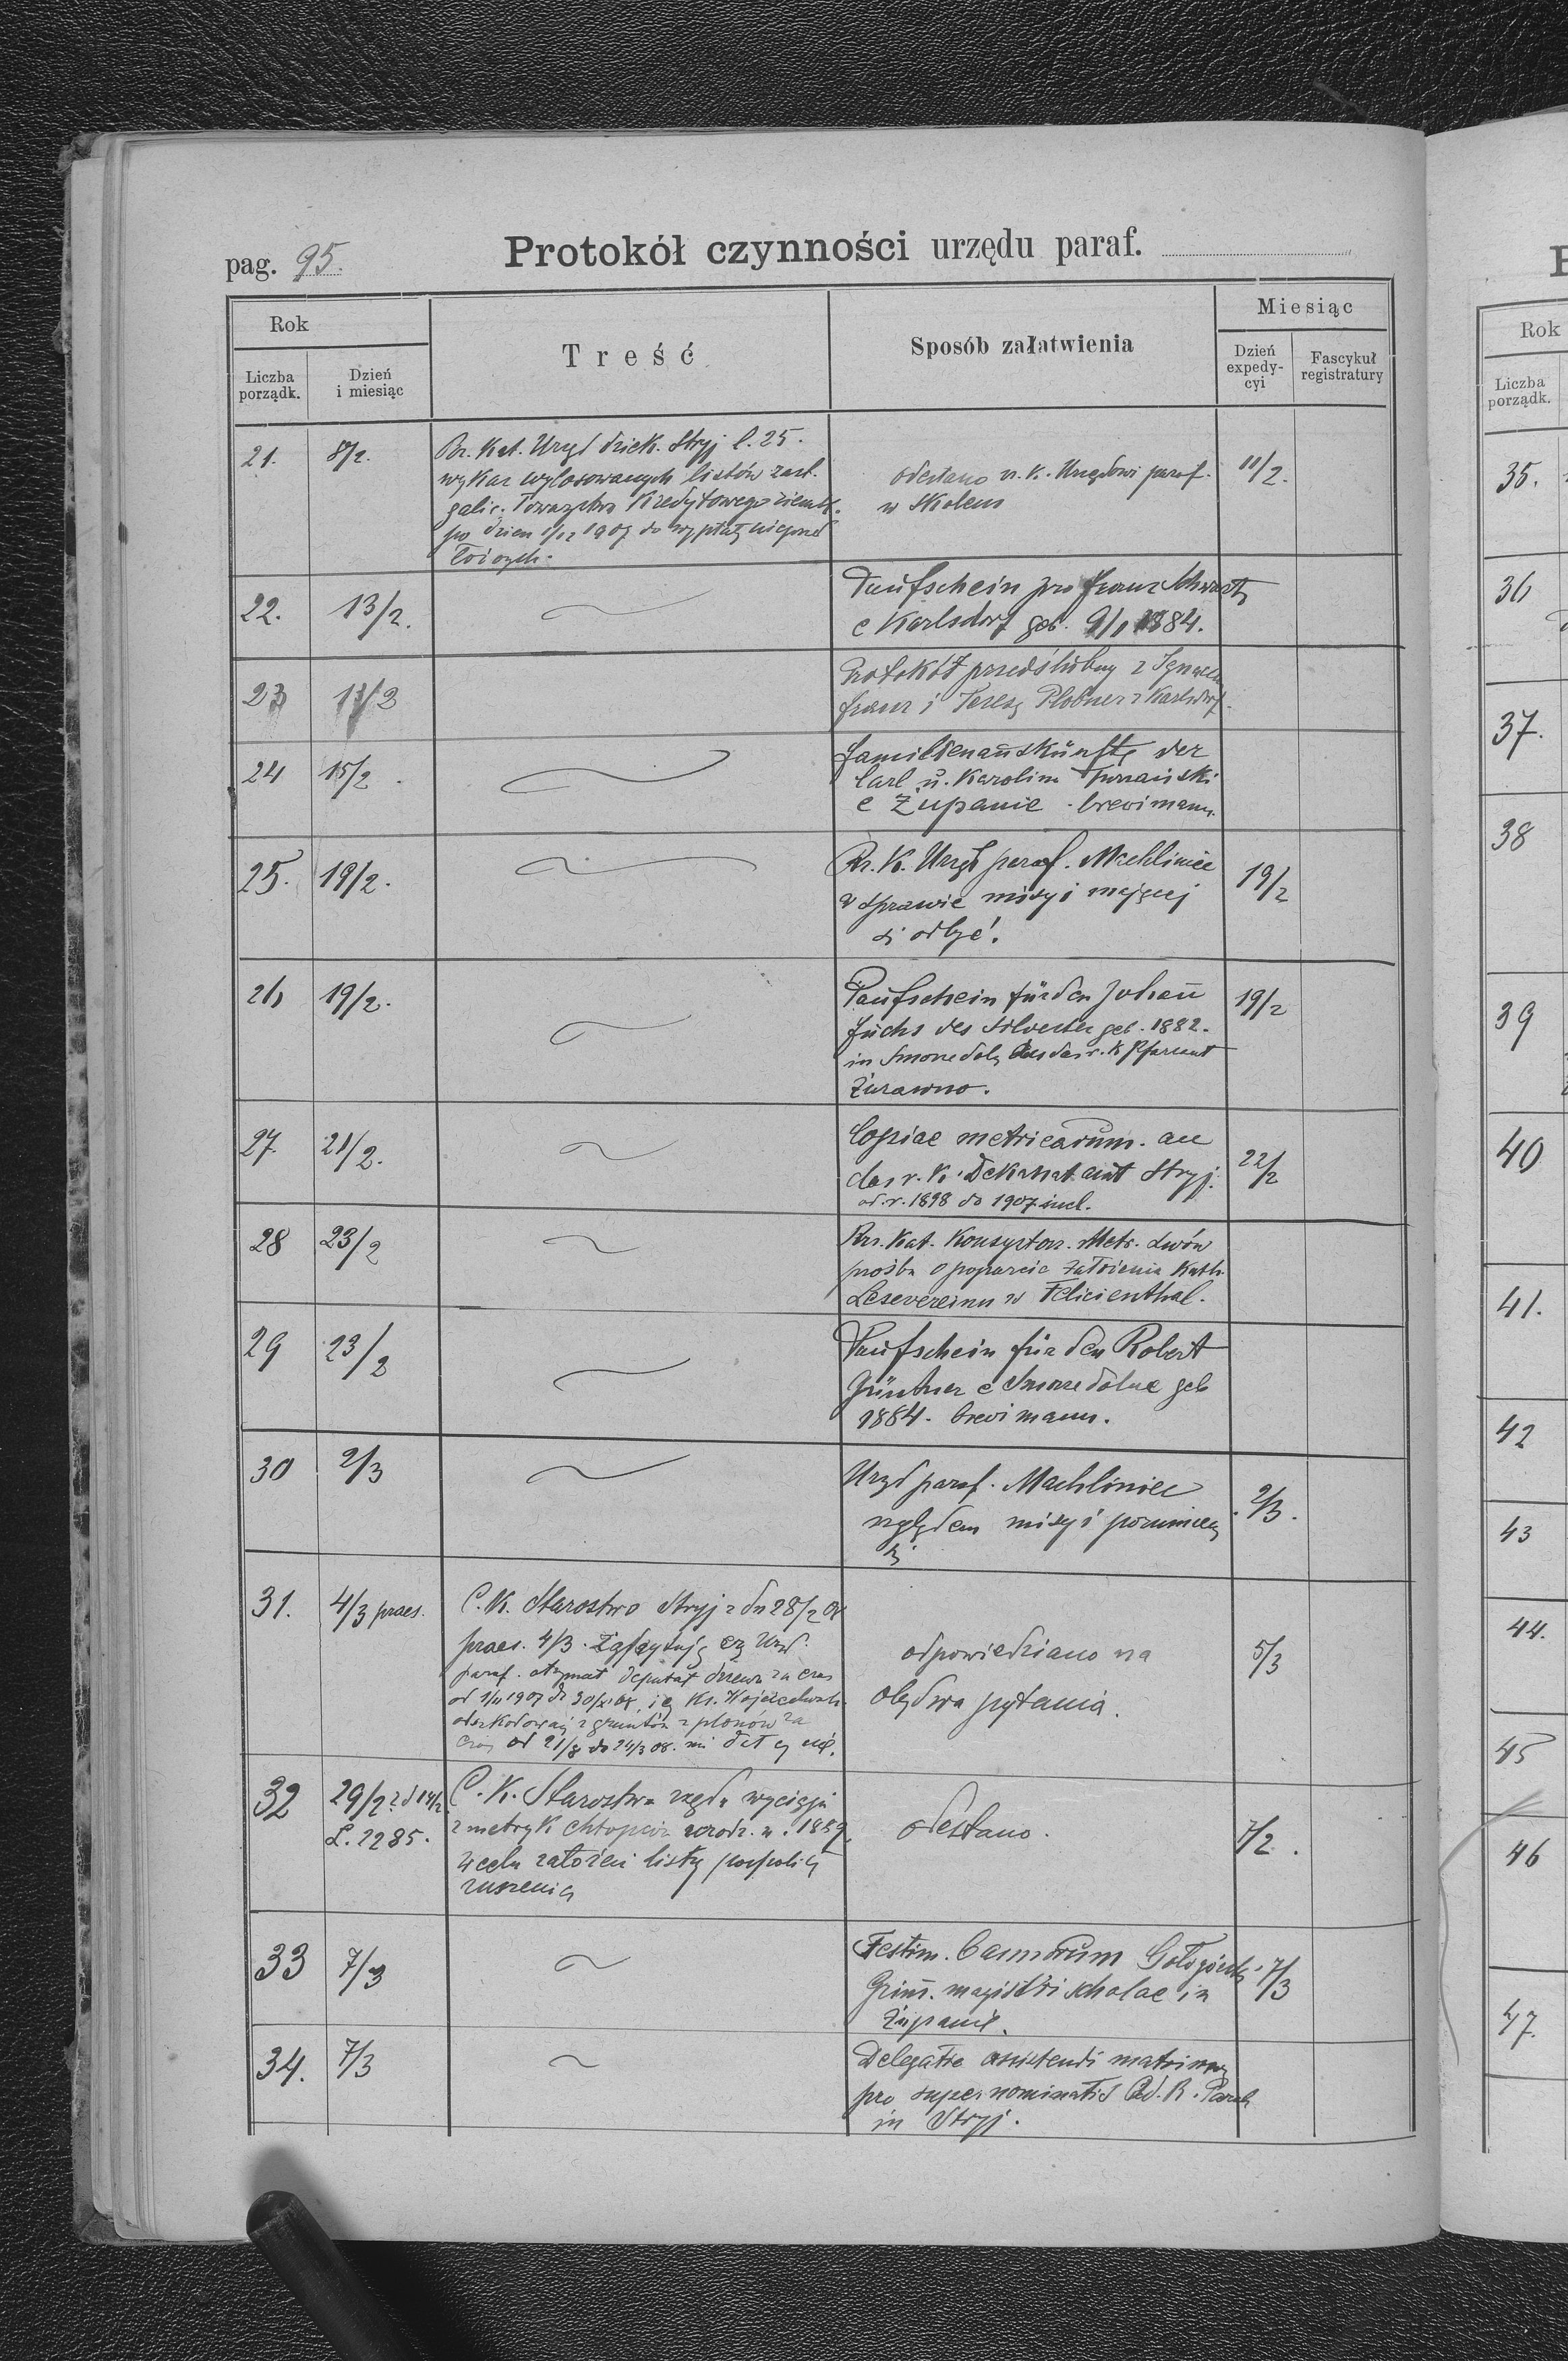 pag. 95.
Protokół czynności urzędu paraf.
Rok
Liczba porządk.
Dzień i miesiąc
Treść
Sposób załatwienia
Miesiąc
Dzień expedy-cyi
Fascykuł registratury
21. 8/2. Rz. Kat. Urząd dziek. Stryj l. 25.
wykaz wylosowanych listów zast.
galic. Towarzystwa Kredytowego ziemsk.
po dzień 1/12 1907 do wypłaty nieprzed
łożonych.
odesłano r. k. Urzędowi paraf. 11/2.
w Skolem
22. 13/2. Taufschein pro Franz Schwartz
e Karlsdorf geb. 9/1 1884.
23 13/2 Protokół przedślubny z Ignacem
Franz i Teresą Plobner z Karlsdorf.
24 15/2 Familienauskünfte der
Carl u. Karolina Turzański
e Żupanie brevi manu.
25. 19/2. Rz. K. Urząd paraf. Machliniec 19/2
w sprawie misyi mającej
się odbyć.
26 19/2. Taufschein für den Johann 19/2
Fuchs des Silvester geb. 1882.
in Smorze dol. an das r. k. Pfarramt
Żurawno.
27. 21/2. Copiae metricarum an 22/2
das r. k. Dekanat amt Stryj.
od r. 1898 do 1907 incl.
28 23/2 Rz. Kat. Konsystorz. Metr. Lwów
prośba o poparcie założenia Kath.
Lesevereinu w Felicienthal.
29 23/2 Taufschein für den Robert
Güntner e Smorze dolne geb
1884. brevi manu.
30 2/3 Urząd paraf. Machliniec 2/3.
względem misyi
31. 4/3 praes. C. K. Starostwo Stryj z dn 28/2 08
praes. 4/3. Zapytują czy Urząd
paraf. otrzymał deputat drzewa za czas
od 1/11 1907 do 30/ 08, i czy Ks.
z gruntów z plonów za
czas od 21/8 do 24/3 08.
odpowiedziano na 5/3
obydwa pytania.
32 29/2 z d 14/2 L. 2285. C. K. Starostwo żąda wyciągu
z metryk chłopców urodz. w r. 1889
w celu założeni listy pospolit
ruszenia
odesłano. 7/2.
33 7/3 Testim. bannorum Gołogórski 7/3
Grinn. magistri scholae in
Żupanie.
34. 7/3 Delegatio assistendi matrimon
pro supernominatis Ad. R. Paroch
in Stryj.
Rok
Liczba porządk.
35.
36
37.
38
39
40
41.
42
43
44.
45
46
47.